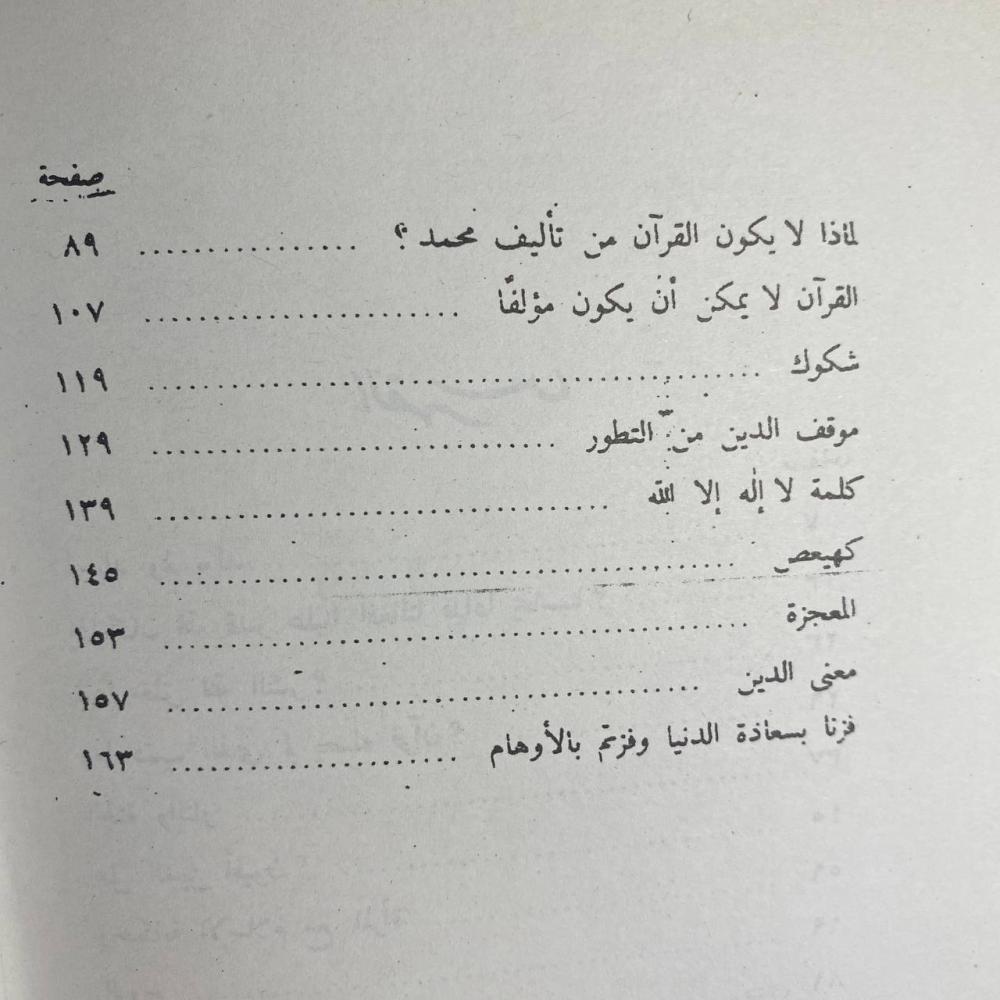 صفحة
لماذا لا يكون القرآن من تأليف محمد ؟ ............... ٨٩
القرآن لا يمكن أن يكون مؤلفًا ...................... ١٠٧
شكوك .......................................... ١١٩
موقف الدين من التطور ............................ ١٢٩
كلمة لا إله إلا الله ................................ ١٣٩
كهيعص ........................................ ١٤٥
المعجزة ........................................ ١٥٣
معنى الدين ..................................... ١٥٧
فزنا بسعادة الدنيا وفزتم بالأوهام .................... ١٦٣